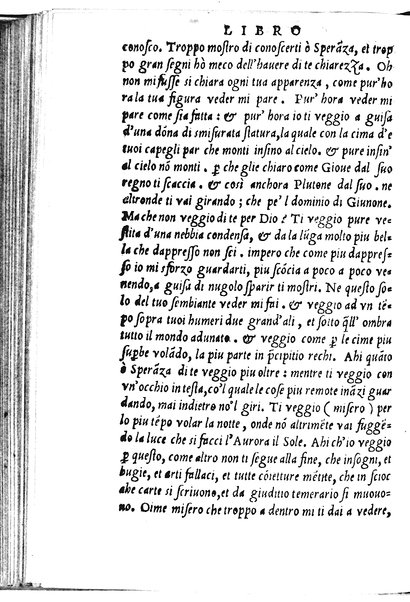 LIBRO
conosco. Troppo mostro di conoscerti ò Sperãza, et trop
po gran segni hò meco dell'havere di te chiarezza. Oh
non mi fusse si chiara ogni tua apparenza, come pur'ho
ra la tua figura veder mi pare. Pur'hora veder mi
pare come sia fatta: & pur'hora io ti veggio a guisa
d'una dóna di smisurata statura, la quale con la cima d'e
tuoi capegli par che monti insino al cielo. & pure insin'
al cielo nó monti. ꝑ che glie chiaro come Gioue dal suo
regno ti scaccia. & cosí anchora Plutone dal suo. ne
altronde ti vai girando; che pe'l dominio di Giunone.
Ma che non veggio di te per Dio? Ti veggio pure ve-
stita d'una nebbia condensa, & da la lúga molto piu bel
la che dappresso non sei. impero che come piu dappres-
so io mi sforzo guardarti, piu scócia a poco a poco ve-
nendo, a guisa di nugolo sparir ti mostri. Ne questo so-
lo del tuo sembiante veder mi fai. & veggio ad vn té-
po sopra tuoi humeri due grand'ali, et sotto q̃ll' ombra
tutto il mondo adunato. & veggio come ꝑ le cime piu
supbe volãdo, la piu parte in pcipitio rechi. Ahi quãto
ò Speráza di te veggio piu oltre: mentre ti veggio con
vn'occhio in testa, co'l quale le cose piu remote inãzi guar
dando, mai indietro no'l giri. Ti veggio (misero) per
lo piu tépo volar la notte, onde nó altriméte vai fuggé-
do la luce che si facci l'Aurora il Sole. Ahi ch'io veggio
ꝑ questo, come altro non ti segue alla fine, che insogni, et
bugie, et arti fallaci, et tutte cóietture métite, che in scioc
che carte si scriuono, et da giuditio temerario si muouo-
no. Oime misero che troppo a dentro mi ti dai a vedere,